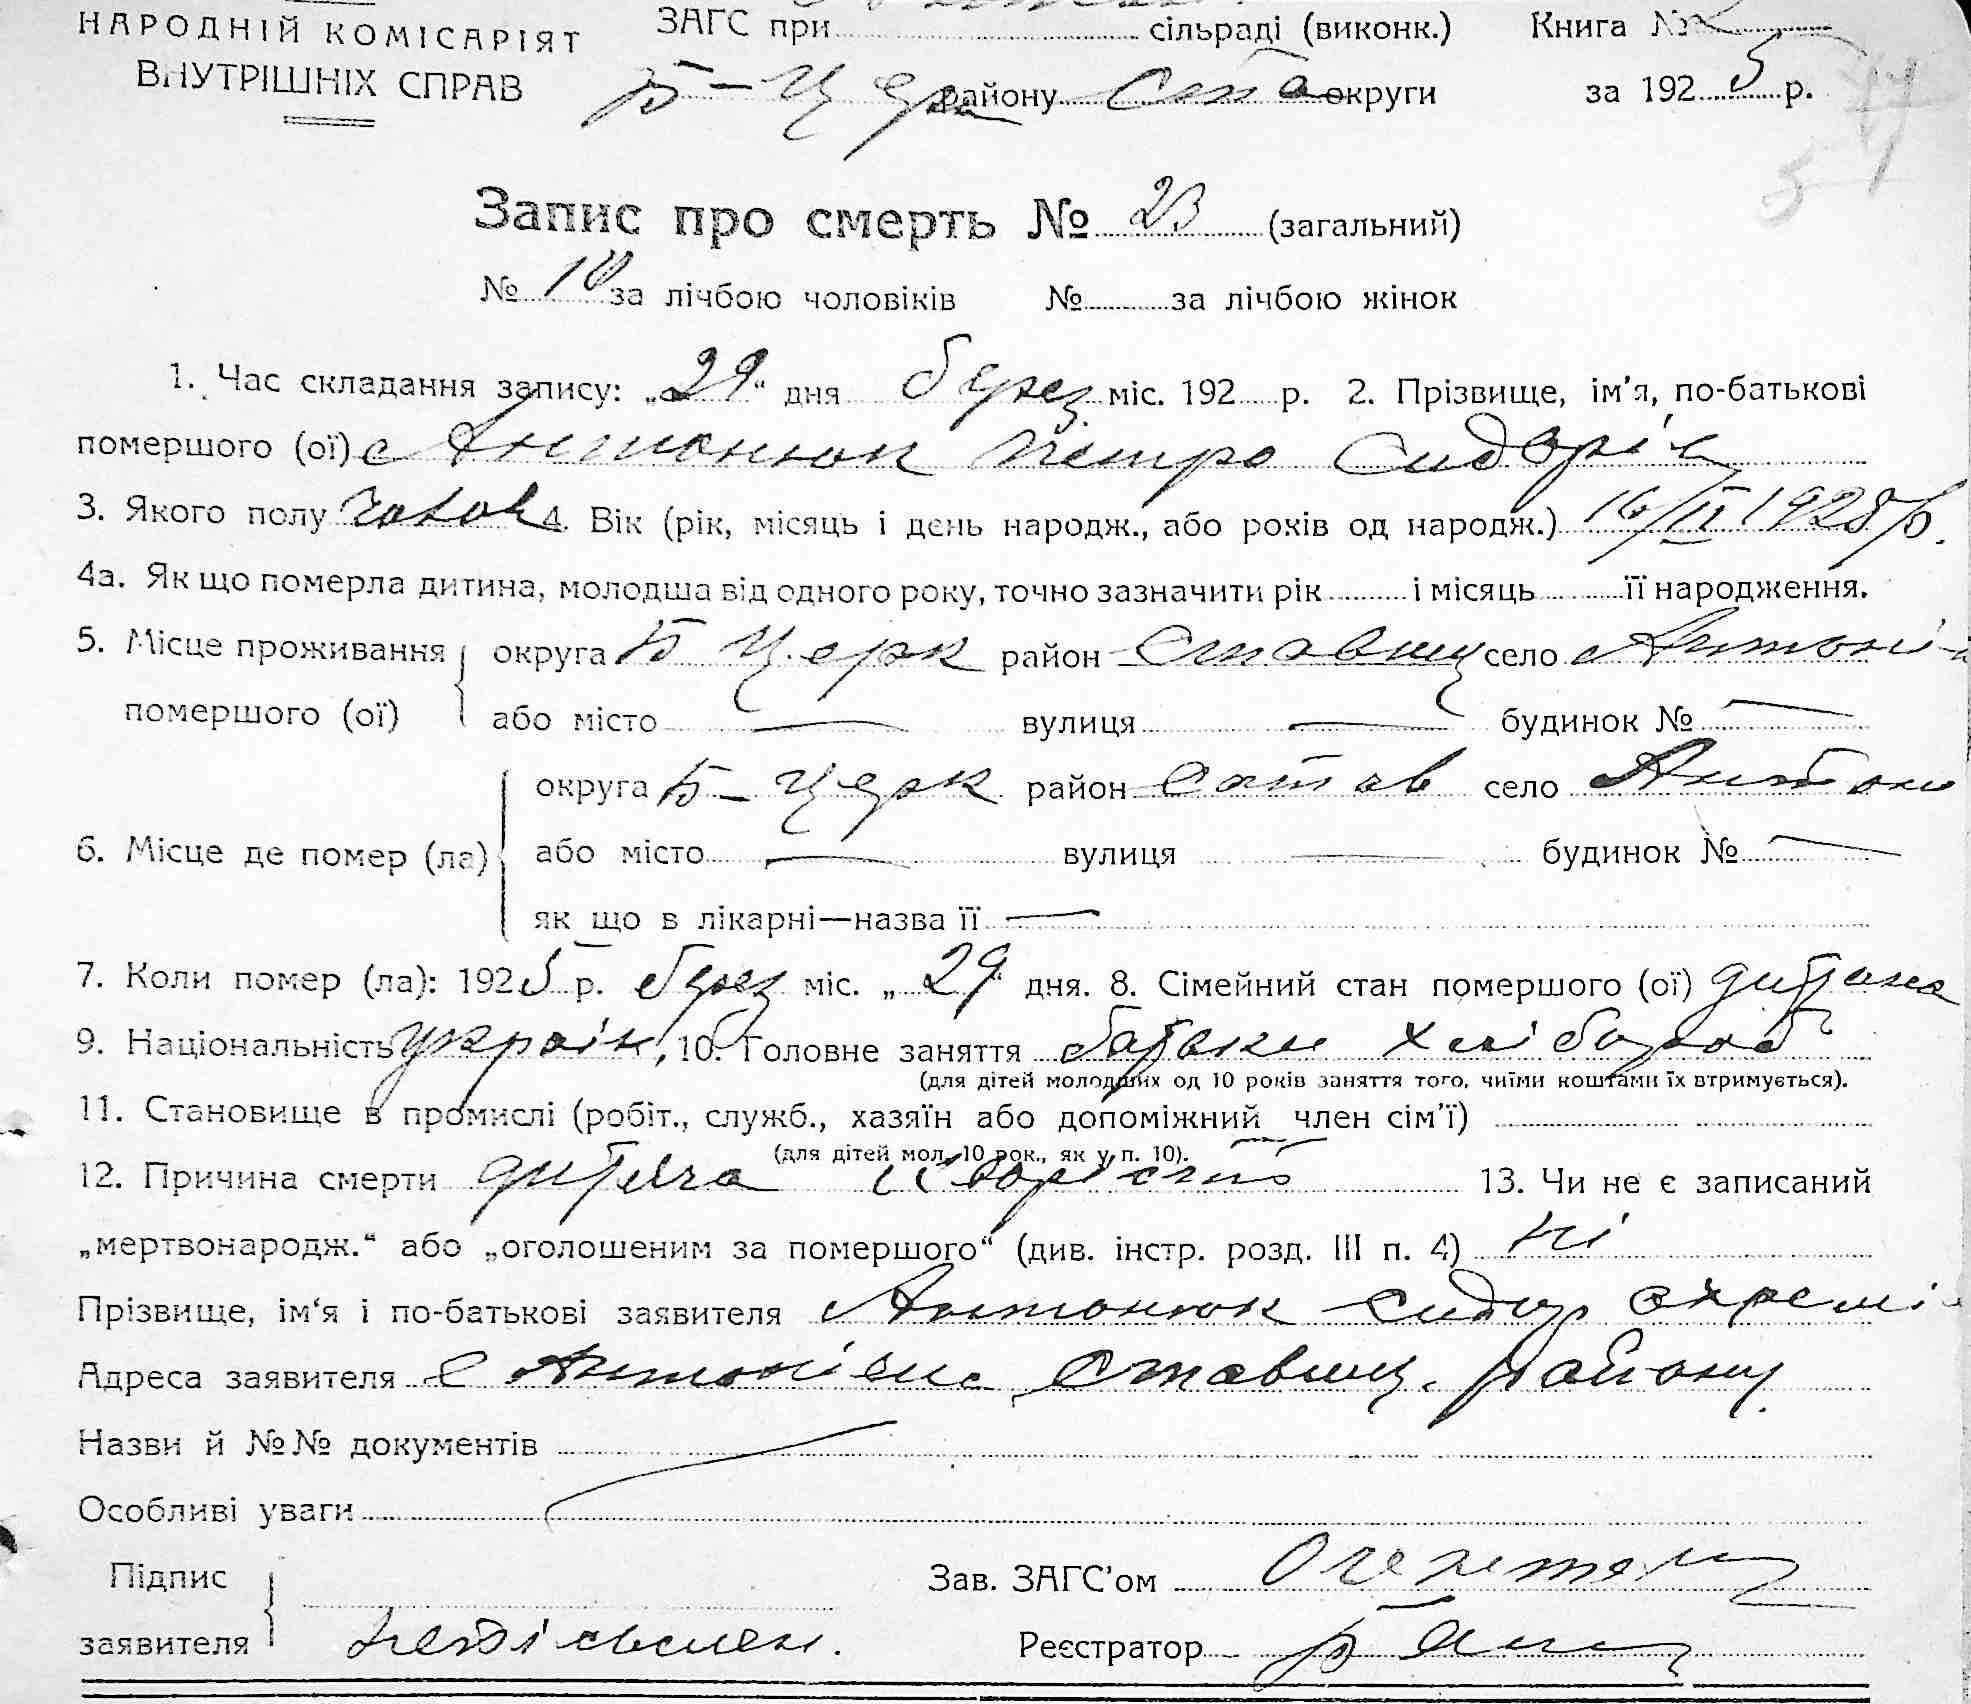 НАРОДНІЙ КОМІСАРІЯТ
ВНУТРІШНІХ СПРАВ
ЗАГС при сільраді (виконк.) Книга №
Б-Церк району Ста округи за 1925 р.
Запис про смерть № 23 (загальний)
№ 10 за лічбою чоловіків № за лічбою жінок
1. Час складання запису: „29“ дня берез міс. 192 р. 2. Прізвище, ім'я, по-батькові
помершого (ої) Антонюк Петро Сидорів
3. Якого полу чолов 4. Вік (рік, місяць і день народж., або років од народж.) 16/II 1925 р.
4а. Як що померла дитина, молодша від одного року, точно зазначити рік і місяць її народження.
5. Місце проживання
помершого (ої)
округа Б Церк район Ставищ село Антоні
або місто — вулиця — будинок № —
6. Місце де помер (ла)
округа Б-Церк район Став село Антон
або місто — вулиця — будинок № —
як що в лікарні—назва її —
7. Коли помер (ла): 1925 р. берез міс. „29“ дня. 8. Сімейний стан помершого (ої) дитина
9. Національність україн, 10. Головне заняття батьки хлібороб
(для дітей молодших од 10 років заняття того, чиїми коштами їх втримується).
11. Становище в промислі (робіт., служб., хазяїн або допоміжний член сім'ї)
(для дітей мол. 10 рок., як у п. 10).
12. Причина смерти дитяча 13. Чи не є записаний
„мертвонародж.“ або „оголошеним за помершого“ (див. інстр. розд. III п. 4) ні
Прізвище, ім'я і по-батькові заявителя Антонюк Сидор
Адреса заявителя с Антонівка Ставищ. району
Назви й №№ документів
Особливі уваги
Підпис
заявителя
неписьмен.
Зав. ЗАГС'ом
Реєстратор